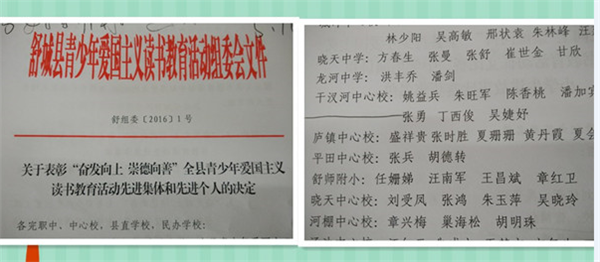 舒城县青少年爱国主义读书教育活动组委会文件
舒组委〔2016〕1号
关于表彰“奋发向上 崇德向善”全县青少年爱国主义
读书教育活动先进集体和先进个人的决定
各完职中、中心校，县直学校，民办学校：
林少阳 吴高敏 邢状袁 朱林峰
晓天中学：方春生 张曼 张舒 崔世金 甘欣
龙河中学：洪丰乔 潘剑
干汊河中心校：姚益兵 朱旺军 陈香桃 潘加
张勇 丁西俊 吴婕妤
庐镇中心校：盛祥贵 张时胜 夏珊珊 黄丹霞 夏会
平田中心校：张兵 胡德转
舒师附小：任姗娣 汪南军 王昌斌 章红卫
晓天中心校：刘爱凤 张鸿 朱玉萍 吴晓玲
河棚中心校：章兴梅 巢海松 胡明珠